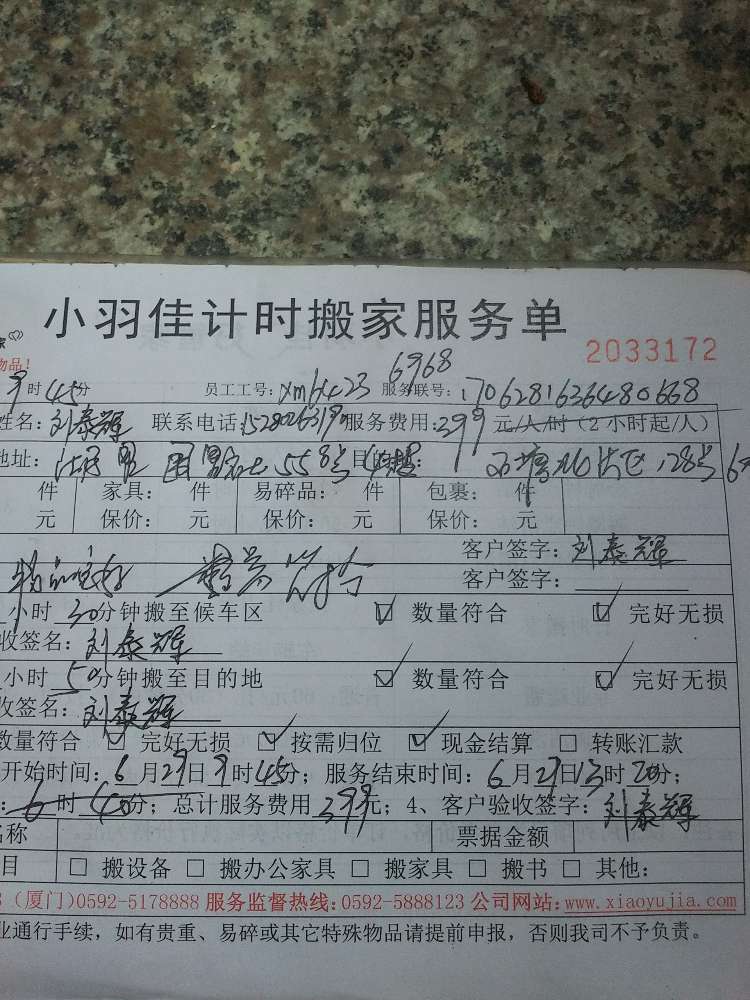 小羽佳计时搬家服务单
2033172
家
物品!
6968
9时45分 员工工号: 服务联号:1706281626480668
姓名:刘泰辉 联系电话: 服务费用:399 元/人/时(2小时起/人)
地址: 558号 128号
件 家具: 件 易碎品: 件 包裹: 件
元 保价: 元 保价: 元 保价: 元
客户签字:刘泰辉
物品完好 数量符合 客户签字:
小时30分钟搬至候车区 数量符合 完好无损
收签名:刘泰辉
小时50分钟搬至目的地 数量符合 完好无损
收签名:刘泰辉
数量符合 完好无损 按需归位 现金结算 转账汇款
开始时间:6月29日9时45分;服务结束时间:6月29日13时20分;
:6时40分;总计服务费用399元;4、客户验收签字:刘泰辉
名称 票据金额
目 搬设备 搬办公家具 搬家具 搬书 其他:
8(厦门)0592-5178888 服务监督热线:0592-5888123 公司网站:www.xiaoyujia.com
业通行手续,如有贵重、易碎或其它特殊物品请提前申报,否则我司不予负责。